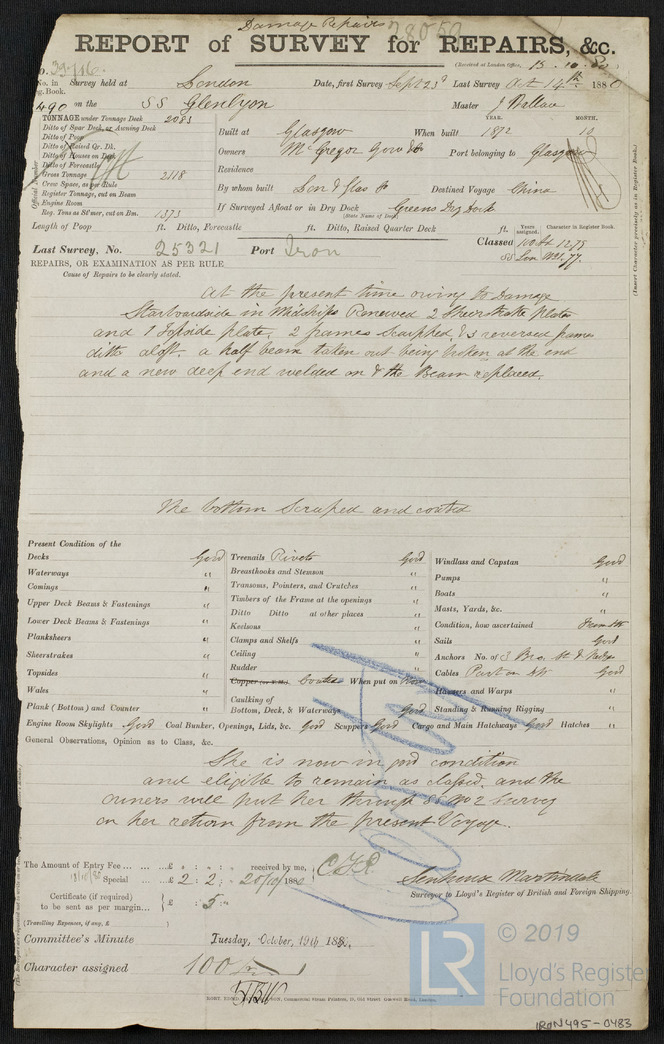 Damage Repairs 28050
REPORT of SURVEY for REPAIRS, &c.
(Received at London Office, 15.10.80
No. in Survey held at London Date, first Survey Sept 23d Last Survey Oct 14th 1880
Reg. Book.
490 on the SS Glenlyon Master J Wallace
TONNAGE under Tonnage Deck 2083
Ditto of Spar Deck, or Awning Deck
Ditto of Poop
Ditto of Raised Qr. Dk.
Ditto of Houses on Deck
Ditto of Forecastle
Gross Tonnage 2118
Crew Space, as per Rule
Register Tonnage, cut on Beam
Engine Room
Reg. Tons as St'mer, cut on Bm. 1373
Official Number
YEAR. MONTH.
Built at Glasgow When built 1872 10
Owners McGregor Gow & Co Port belonging to Glasgow
Residence
By whom built Lon & Glas Co Destined Voyage China
If Surveyed Afloat or in Dry Dock Greens Dry Dock
(State Name of Dock)
Length of Poop ft. Ditto, Forecastle ft. Ditto, Raised Quarter Deck ft.
Years assigned. Character in Register Book.
(Insert Character precisely as in Register Book.)
Last Survey, No. 25321 Port Iron Classed 100 A1 12,79
SS Lon No1.77.
REPAIRS, OR EXAMINATION AS PER RULE
Cause of Repairs to be clearly stated.
At the present time owing to Damage
Starboardside in Midships Renewed 2 Sheerstrake plates
and 1 Topside plate, 2 frames scarphed, & 3 reversed frames
ditto aloft. a half beam taken out being broken at the end
and a new deep end welded on & the Beam replaced.
The bottom Scraped and coated
Present Condition of the
Decks Good
Waterways "
Comings "
Upper Deck Beams & Fastenings "
Lower Deck Beams & Fastenings "
Planksheers "
Sheerstrakes "
Topsides "
Wales "
Plank (Bottom) and Counter "
Treenails Rivets Good
Breasthooks and Stemson "
Transoms, Pointers, and Crutches "
Timbers of the Frame at the openings "
Ditto Ditto at other places "
Keelsons "
Clamps and Shelfs "
Ceiling "
Rudder "
Copper (or Y.M.) Coated When put on Now
Caulking of
Bottom, Deck, & Waterways Good
Windlass and Capstan Good
Pumps "
Boats "
Masts, Yards, &c. "
Condition, how ascertained From dk
Sails Good
Anchors No. of 3 Bro. St &
Cables Part on dk Good
Hawsers and Warps "
Standing & Running Rigging "
Engine Room Skylights Good Coal Bunker, Openings, Lids, &c. Good Scuppers Good Cargo and Main Hatchways Good Hatches "
General Observations, Opinion as to Class, &c.
She is now in good condition
and eligible to remain as classed. and the
owners will put her through SS No 2 Survey
on her return from the present Voyage.
The Amount of Entry Fee ... ... ... £ : : received by me,
18/10/80 Special ... ... £ 2 : 2 : 20/10/1880
Certificate (if required) to be sent as per margin... £ : 5 :
(Travelling Expenses, if any, £ )
Martindale
Surveyor to Lloyd's Register of British and Foreign Shipping.
Committee's Minute Tuesday, October, 19th 1880.
Character assigned 100 A1
© 2019
LR
Lloyd's Register
Foundation
IRON495-0483